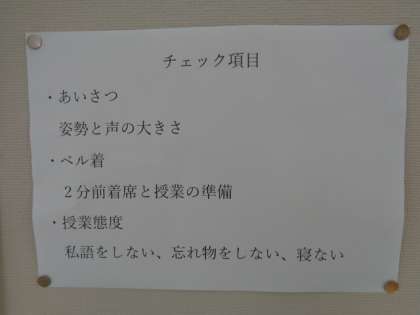 チェック項目
・あいさつ
姿勢と声の大きさ
・ベル着
２分前着席と授業の準備
・授業態度
私語をしない、忘れ物をしない、寝ない